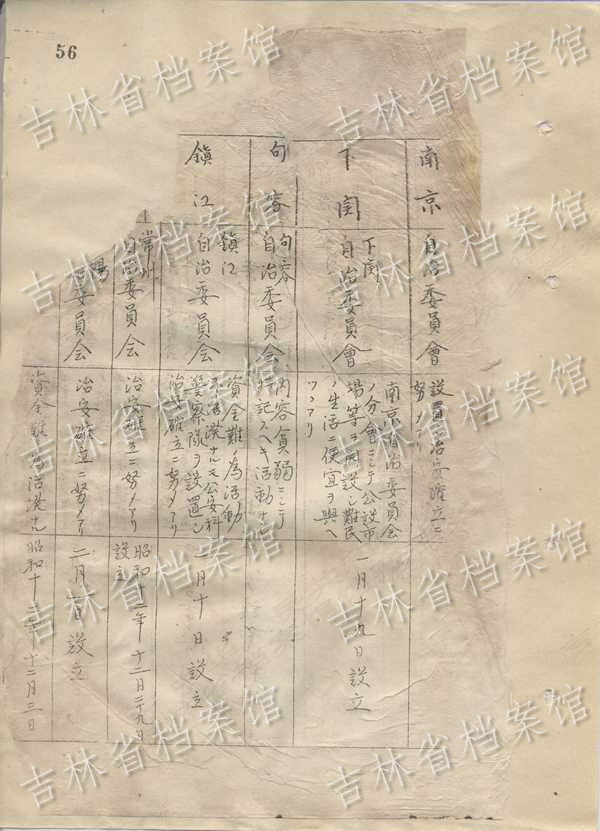 56
南京
自治委員會
努メアリ
下関
下関
自治委員會
南京自治委員会
ノ分會ニシテ公設市
場等ヲ開設シ難民
ノ生活ニ便宜ヲ與ヘ
ツツアリ
一月十九日設立
句容
句容
自治委員会
内容貧弱ニシテ
特記スヘキ活動ナシ
鎮江
鎮江
自治委員会
資金難ノ為活動
警察隊ヲ設置シ
治安確立ニ努メアリ
月十日設立
常州
自治委員会
治安確立ニ努メアリ
昭和十二年十二月二十九日
設立
陽
委員会
治安確立ニ努メアリ
設立
資金難ノ為活溌ナ
昭和十二年十二月三日
吉林省档案馆
吉林省档案馆
吉林省档案馆
吉林省档案馆
吉林省档案馆
吉林省档案馆